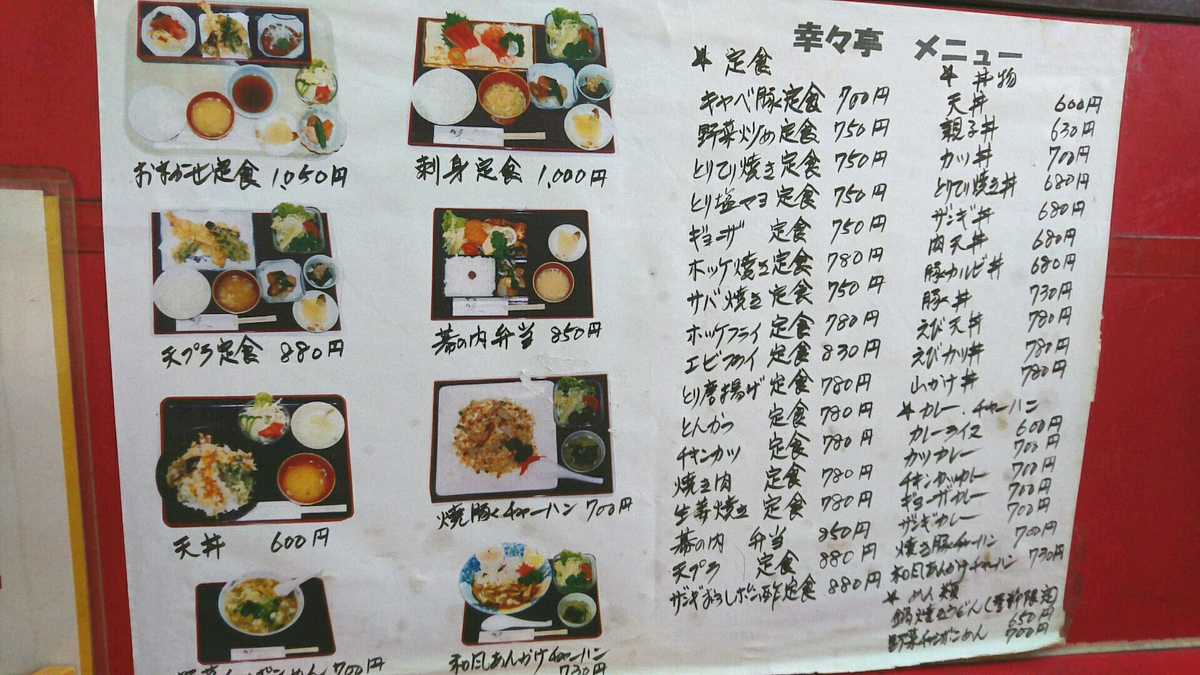 幸々亭 メニュー
おまかせ定食 1,050円
刺身定食 1,000円
天プラ定食 880円
幕の内弁当 850円
天丼 600円
焼豚チャーハン 700円
700円
和風あんかけチャーハン
730円
* 定食
キャベ豚定食 700円
野菜炒め定食 750円
とりてり焼き定食 750円
とり塩マヨ定食 750円
ギョーザ 定食 750円
ホッケ焼き定食 780円
サバ焼き定食 750円
ホッケフライ定食 780円
エビフライ定食 830円
とり唐揚げ定食 780円
とんかつ 定食 780円
チキンカツ 定食 780円
焼き肉 定食 780円
生姜焼き 定食 780円
幕の内 弁当 850円
天プラ 定食 880円
ザンギおろしポン酢定食 880円
* 丼物
天丼 600円
親子丼 630円
カツ丼 700円
とりてり焼き丼 680円
ザンギ丼 680円
肉天丼 680円
豚カルビ丼 680円
豚丼 730円
えび天丼 780円
えびカツ丼 780円
山かけ丼 780円
* カレー・チャーハン
カレーライス 600円
カツカレー 700円
チキンカツカレー 700円
ギョーザカレー 700円
ザンギカレー 700円
焼き豚チャーハン 700円
和風あんかけチャーハン 730円
* めん類
鍋焼きうどん(季節限定)
650円
野菜チャンポンめん 700円